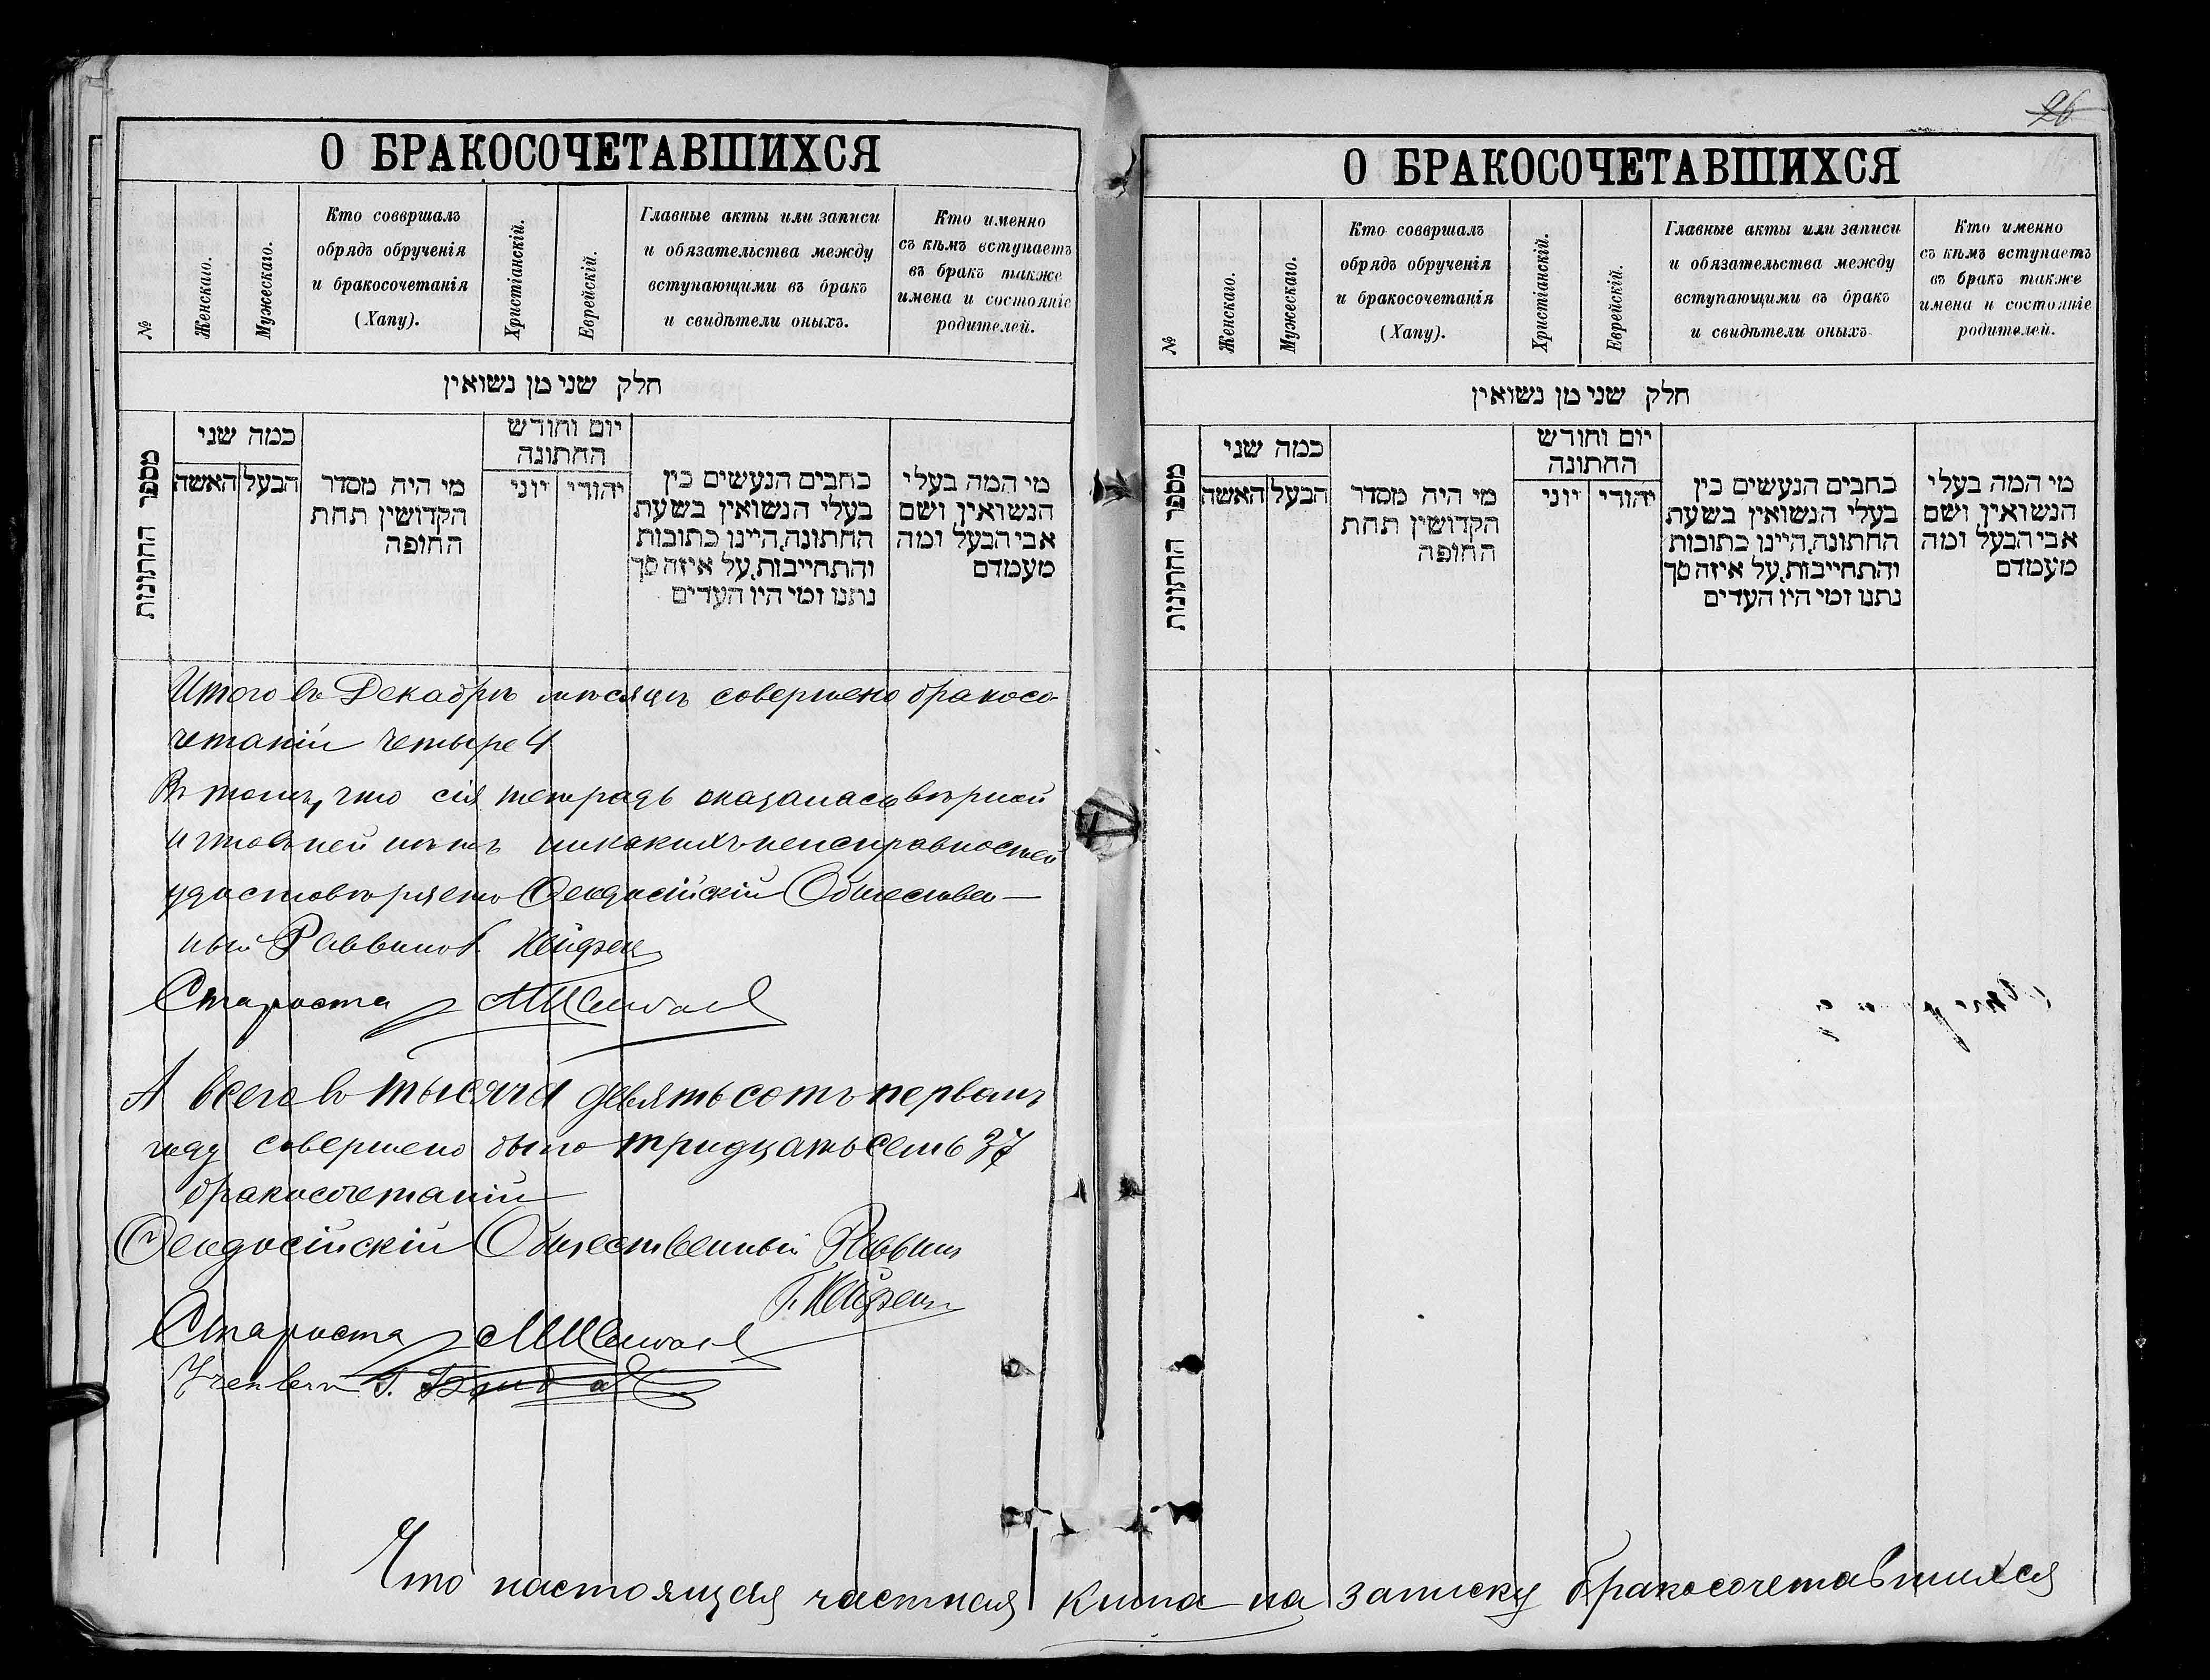 О БРАКОСОЧЕТАВШИХСЯ
№
Женскаго.
Мужескаго.
Кто совершалъ
обрядъ обрученія
и бракосочетанія
(Хапу).
Христіанскій.
Еврейскій.
Главные акты или записи
и обязательства между
вступающими въ бракъ
и свидѣтели оныхъ.
Кто именно
съ кѣмъ вступаетъ
въ бракъ также
имена и состояніе
родителей.
חלק שני מן נשואין
מספר החתונות
כמה שני
האשה
הבעל
מי היה מסדר
הקדושין תחת
החופה
יום וחודש
החתונה
יוני
יהודי
כתבים הנעשים בין
בעלי הנשואין בשעת
החתונה, היינו כתובות
והתחייבות, על איזה סך
נתנו ומי היו העדים
מי המה בעלי
הנשואין ושם
אבי הבעל ומה
מעמדם
Итого въ Декабрѣ мѣсяцѣ совершено бракосо-
четаній четыре 4
Въ томъ, что сія тетрадь оказалась вѣрной
и что въ ней нѣтъ никакихъ неисправностей
удостовѣряетъ Ѳеодосійскій Обществен-
ный Раввинъ Г. Хейфец
Староста
А всего въ тысяча девятьсотъ первомъ
году совершено было тридцать семь 37
бракосочетаній
Ѳеодосійскій Общественный Раввинъ
Г. Хейфец
Староста
Что настоящая частная книга на записку бракосочетавшихся
26
О БРАКОСОЧЕТАВШИХСЯ
№
Женскаго.
Мужескаго.
Кто совершалъ
обрядъ обрученія
и бракосочетанія
(Хапу).
Христіанскій.
Еврейскій.
Главные акты или записи
и обязательства между
вступающими въ бракъ
и свидѣтели оныхъ
Кто именно
съ кѣмъ вступаетъ
въ бракъ также
имена и состояніе
родителей.
חלק שני מן נשואין
מספר החתונות
כמה שני
האשה
הבעל
מי היה מסדר
הקדושין תחת
החופה
יום וחודש
החתונה
יוני
יהודי
כתבים הנעשים בין
בעלי הנשואין בשעת
החתונה, היינו כתובות
והתחייבות, על איזה סך
נתנו ומי היו העדים
מי המה בעלי
הנשואין ושם
אבי הבעל ומה
מעמדם